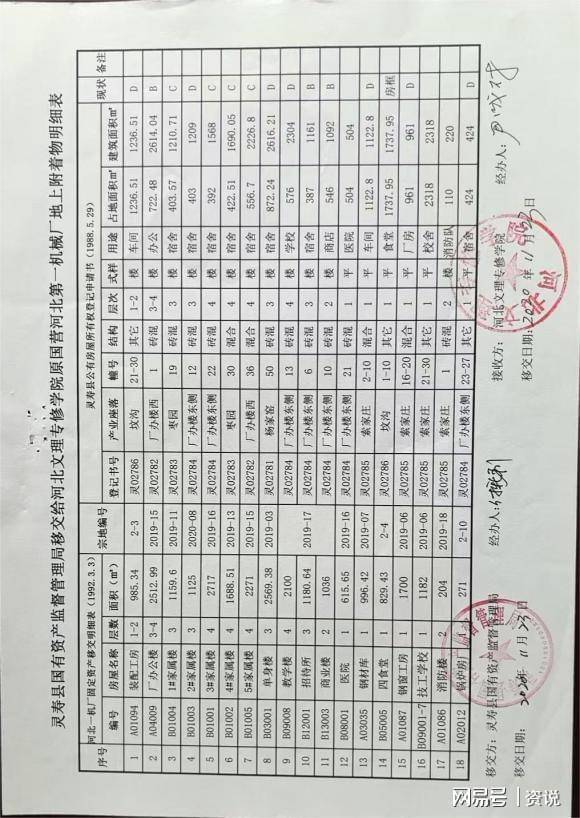 灵寿县国有资产监督管理局移交给河北文理专修学院原国营河北第一机械厂地上附着物明细表
序号 河北一机厂固定资产移交明细表（1992.3.3） 宗地编号 灵寿县公有房屋所有权登记申请书（1988.5.29） 现状 备注
编号 房屋名称 层数 面积（㎡） 登记书号 产业座落 幢号 结构 层次 式样 用途 占地面积㎡ 建筑面积㎡
1 A01094 装配工房 1-2 985.34 2-3 灵02786 坟沟 21-30 其它 1-2 楼 车间 1236.51 1236.51 D
2 A04009 厂办公楼 3-4 2512.99 2019-15 灵02782 厂办楼西 1 砖混 3-4 楼 办公 722.48 2614.04 B
3 B01004 1#家属楼 3 1159.6 2019-11 灵02783 枣园 19 砖混 3 楼 宿舍 403.57 1210.71 C
4 B01003 2#家属楼 3 1125 2020-08 灵02784 厂办楼东侧 12 砖混 3 楼 宿舍 403 1209 D
5 B01001 3#家属楼 4 2717 2019-16 灵02784 厂办楼东侧 22 砖混 4 楼 宿舍 392 1568 C
6 B01002 4#家属楼 4 1688.51 2019-13 灵02783 枣园 30 混合 4 楼 宿舍 422.51 1690.05 C
7 B01005 5#家属楼 4 2271 2019-15 灵02782 厂办楼西 36 砖混 4 楼 宿舍 556.7 2226.8 C
8 B03001 单身楼 3 2569.38 2019-03 灵02781 杨家窑 50 砖混 3 楼 宿舍 872.24 2616.21 D
9 B09008 教学楼 4 2100 灵02784 厂办楼东侧 13 砖混 4 楼 学校 576 2304 D
10 B12001 招待所 3 1180.64 2019-17 灵02784 厂办楼东侧 6 砖混 3 楼 宿舍 387 1161 B
11 B13003 商业楼 2 1036 灵02784 厂办楼东侧 10 砖混 2 楼 商店 546 1092 B
12 B08001 医院 1 615.65 2019-16 灵02784 厂办楼东侧 21 砖混 1 平 医院 504 504
13 A03035 钢材库 1 996.42 2019-07 灵02785 索家庄 2-10 混合 1 平 车间 1122.8 1122.8 D
14 B05005 四食堂 1 829.43 2-4 灵02786 坟沟 1-10 其它 1 平 食堂 1737.95 1737.95 房框
15 A01087 钢窗工房 1 1700 2019-06 灵02785 索家庄 16-20 混合 1 平 厂房 961 961 D
16 B09001-7 技工学校 1 1182 2019-06 灵02785 索家庄 21-30 其它 1 平 校舍 2318 2318
17 A01086 消防楼 2 204 2019-18 灵02785 索家庄 1 砖混 2 楼 消防队 110 220
18 A02012 锅炉房 1 271 2-10 灵02784 厂办楼东侧 23-27 其它 1 平 宿舍 424 424 D
移交方：灵寿县国有资产监督管理局 经办人： 接收方：河北文理专修学院 经办人：
移交日期：2020年11月23日 移交日期：2020年11月23日
网易号 | 资说